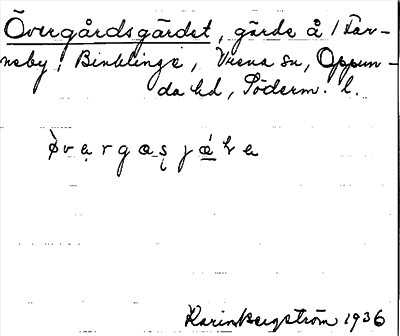 Övergårdsgärdet, gärde å / Far-
neby, Binklinge, Vrena sn, Oppun-
da hd, Söderm. l.
Karin Bergström 1936